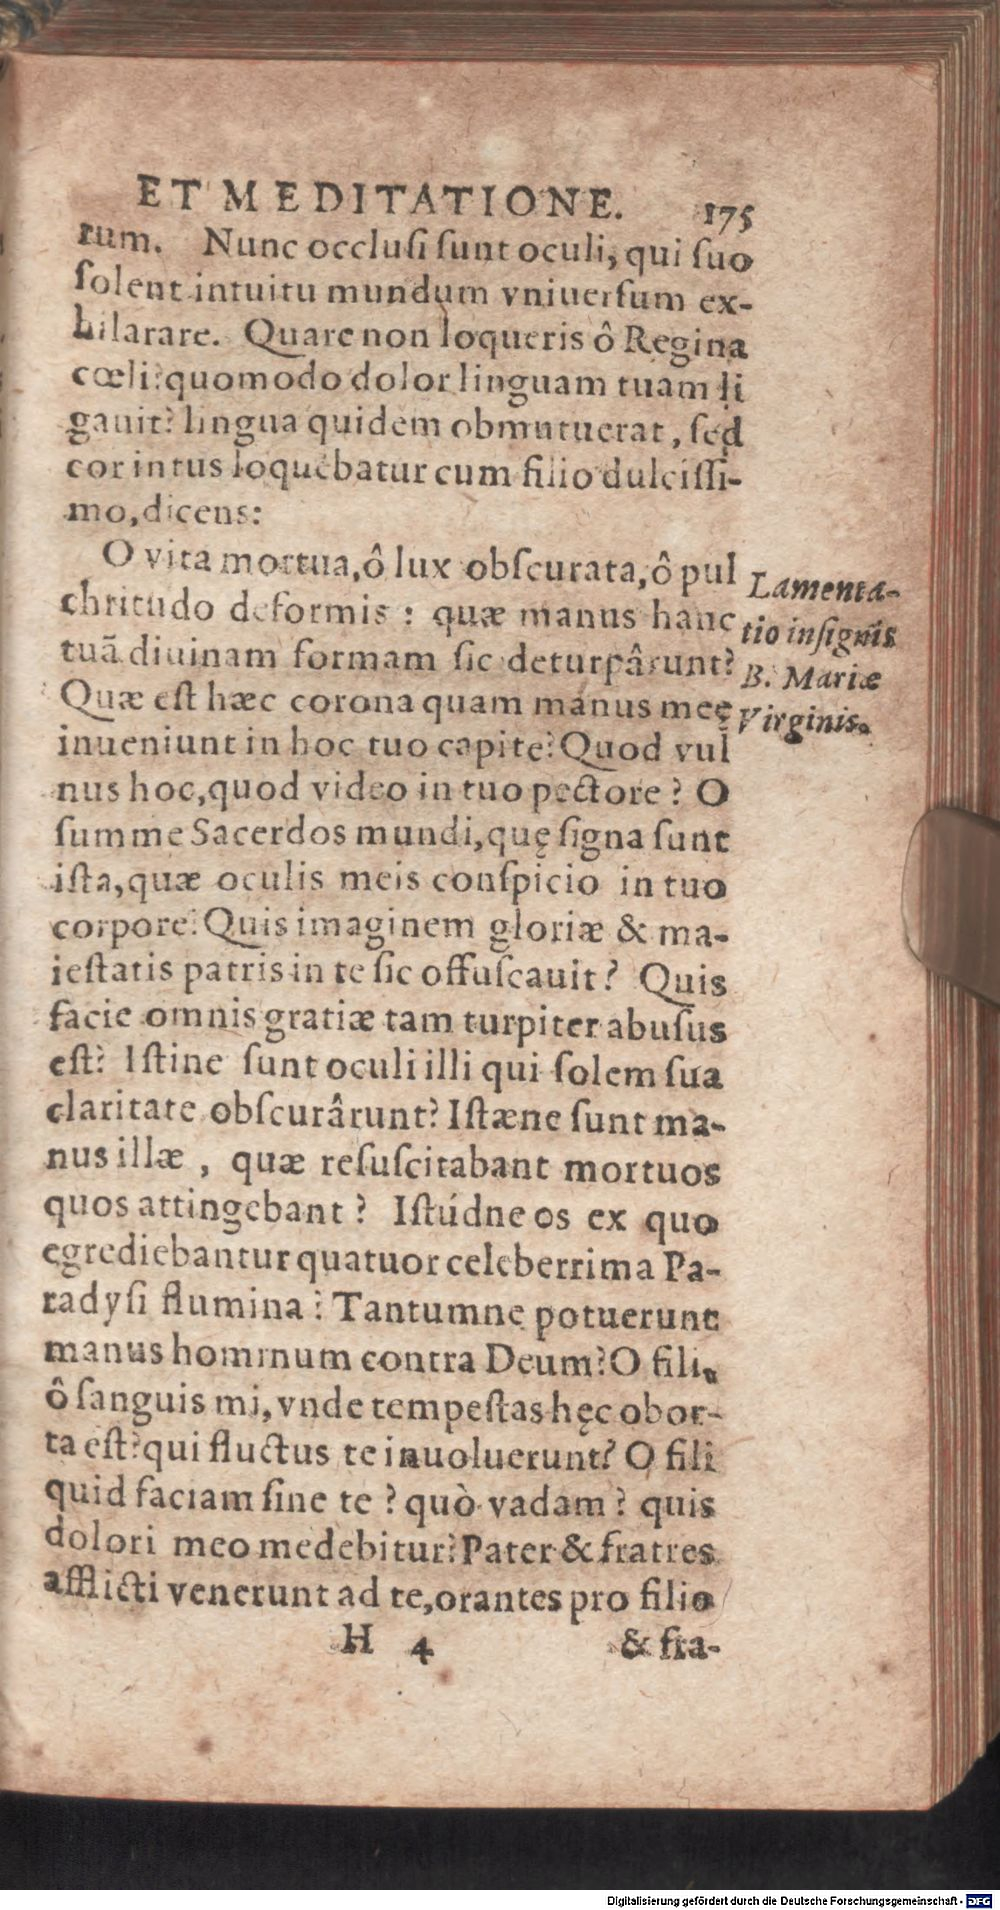 ET MEDITATIONE. 175
rum. Nunc occlusi sunt oculi, qui suo
solent intuitu mundum vniuersum ex-
hilarare. Quare non loqueris ô Regina
cœli? quomodo dolor linguam tuam li
gauit? lingua quidem obmutuerat, sed
cor intus loquebatur cum filio dulcissi-
mo, dicens:
O vita mortua, ô lux obscurata, ô pul
chritudo deformis: quæ manus hanc
tuã diuinam formam sic deturpârunt?
Quæ est hæc corona quam manus meę
inueniunt in hoc tuo capite? Quod vul
nus hoc, quod video in tuo pectore? O
summe Sacerdos mundi, quę signa sunt
ista, quæ oculis meis conspicio in tuo
corpore? Quis imaginem gloriæ & ma-
iestatis patris in te sic offuscauit? Quis
facie omnis gratiæ tam turpiter abusus
est? Istine sunt oculi illi qui solem sua
claritate obscurârunt? Istæne sunt ma-
nus illæ, quæ resuscitabant mortuos
quos attingebant? Istúdne os ex quo
egrediebantur quatuor celeberrima Pa-
radysi flumina? Tantumne potuerunt
manus hominum contra Deum? O fili,
ô sanguis mi, vnde tempestas hęc obor-
ta est? qui fluctus te inuoluerunt? O fili
quid faciam sine te? quò vadam? quis
dolori meo medebitur? Pater & fratres
afflicti venerunt ad te, orantes pro filio
H 4 & fra-
Lamenta-
tio insignis
B. Mariæ
Virginis.
Digitalisierung gefördert durch die Deutsche Forschungsgemeinschaft - DFG